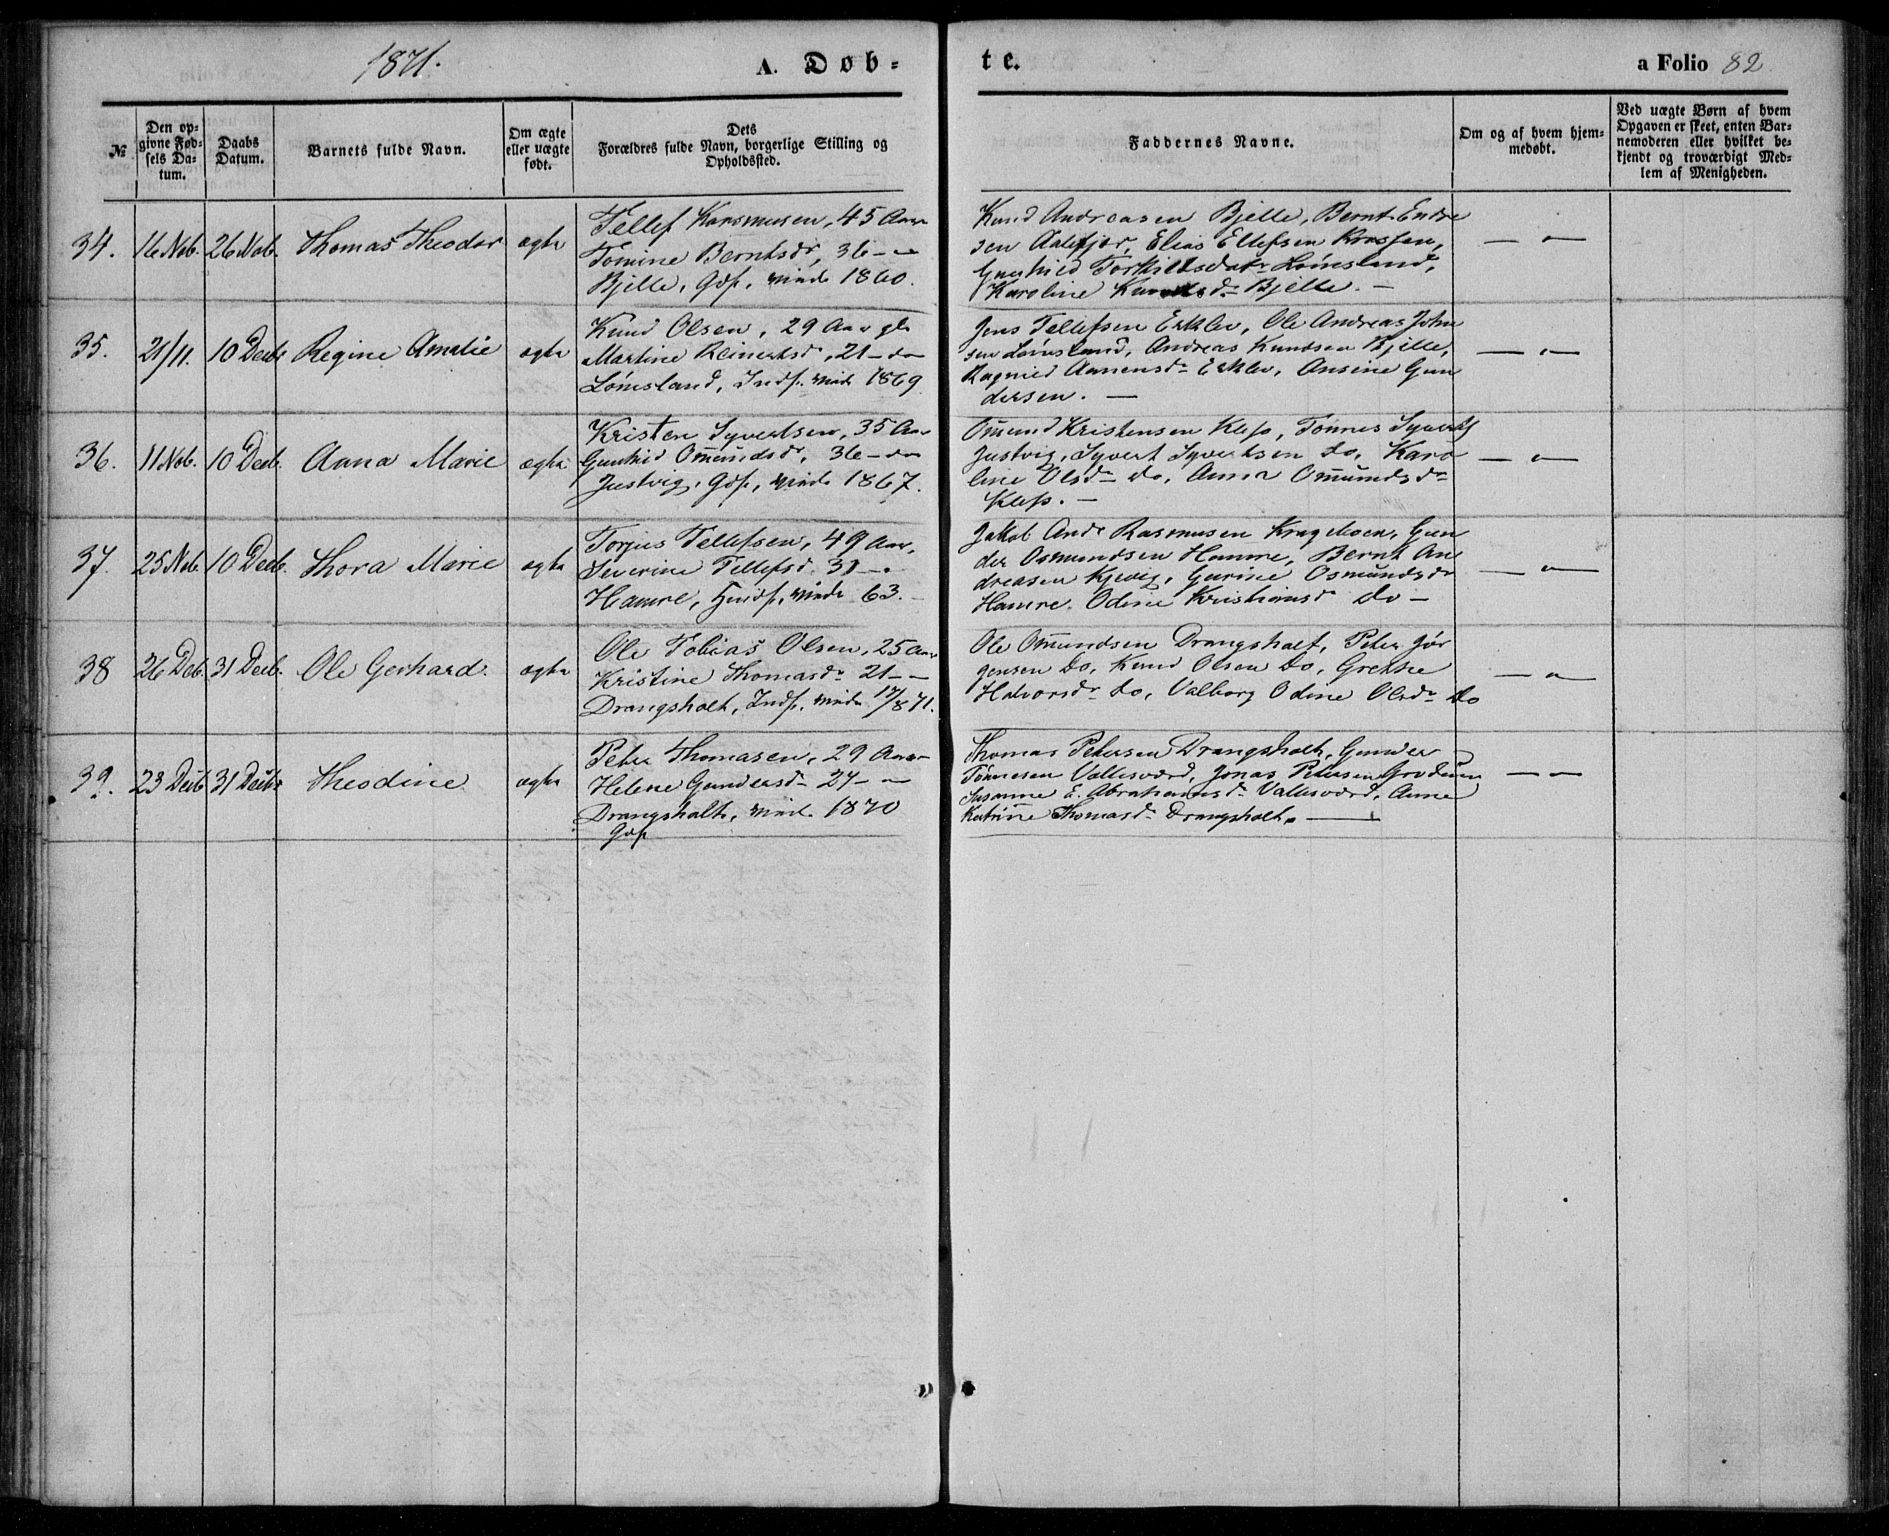 1871.
A. Døb-
te.
a Folio 82
№
Den op-
givne Fød-
sels Da-
tum.
Daabs
Datum.
Barnets fulde Navn.
Om ægte
eller uægte
født.
Dets
Forældres fulde Navn, borgerlige Stilling og
Opholdssted.
Faddernes Navne.
Om og af hvem hjem-
medøbt.
Ved uægte Børn af hvem
Opgaven er skeet, enten Bar-
nemoderen eller hvilket be-
kjendt og troværdigt Med-
lem af Menigheden.
34.
16 Nob.
26 Nob.
Thomas Theodor
ægte
Tellef Rasmusen, 45 Aar
Tomine Berntsdr, 36 — "
Bjelle, Gdf. vind. 1860.
Knud Andreasen Bjelle, Bernt Endre
sen Aalefjær, Elias Ellefsen
Gunhild Torkildsdatr Lømsland,
Karoline Knudsdr Bjelle. —
— " —
35.
21/11.
10 Decb.
Regine Amalie
ægte
Knud Olsen, 29 Aar gl.
Martine Reinertsdr, 21 — do
Lømsland, Indf. vind. 1869
Jens Tellefsen Erklev, Ole Andreas John
sen Lømsland, Andreas Knudsen Bjelle,
Ragnild Aanensdr Erklev, Ansine Gun
dersen. —
— " —
36.
11 Nob.
10 Decb.
Anna Marie
ægte
Kristen Syvertsen, 35 Aar
Gunhild Omundsdr, 36 — do
Justvig, Gdf, vind. 1867.
Omund Kristensen Kless, Tønnes Syverts
Justvig, Syvert Syvertsen do, Karo
line Olsdr do, Anna Omundsdr
Kless. —
— " —
37.
25 Nob.
10 Decb.
Thora Marie
ægte
Torjus Tellefsen, 49 Aar,
Severine Tellefsd. 31 — "
Hamre, vind. 63. —
Jakob Andr Rasmusen Krageboen, Gun
der Osmundsen Hamre, Bernt An
dreasen Kjevig, Gurine Osmundsdr
Hamre. Odine Kristiansdr do —
— " —
38
26 Deb.
31 Decb.
Ole Gerhard.
ægte
Ole Tobias Olsen, 25 Aar
Kristine Thomasdr 21 — "
Drangsholt, Indf. vind. 17/8 71.
Ole Omundsen Drangsholt, Peter Jør
gensen do, Knud Olsen do, Grethe
Halvorsdr do, Valborg Odine Olsdr do
— " —
39.
23 Decb
31 Decbr
Theodine
ægte
Peter Thomasen, 29 Aar
Helene Gundersdr 24 — "
Drangsholt, vind. 1870
Gdf
Thomas Petersen Drangsholt, Gunder
Tønnesen Vallesværd, Jonas Petersen
Susanne E. Abrahamsdr Vallesværd, Anne
Katrine Thomasdr Drangsholt. —
— " —